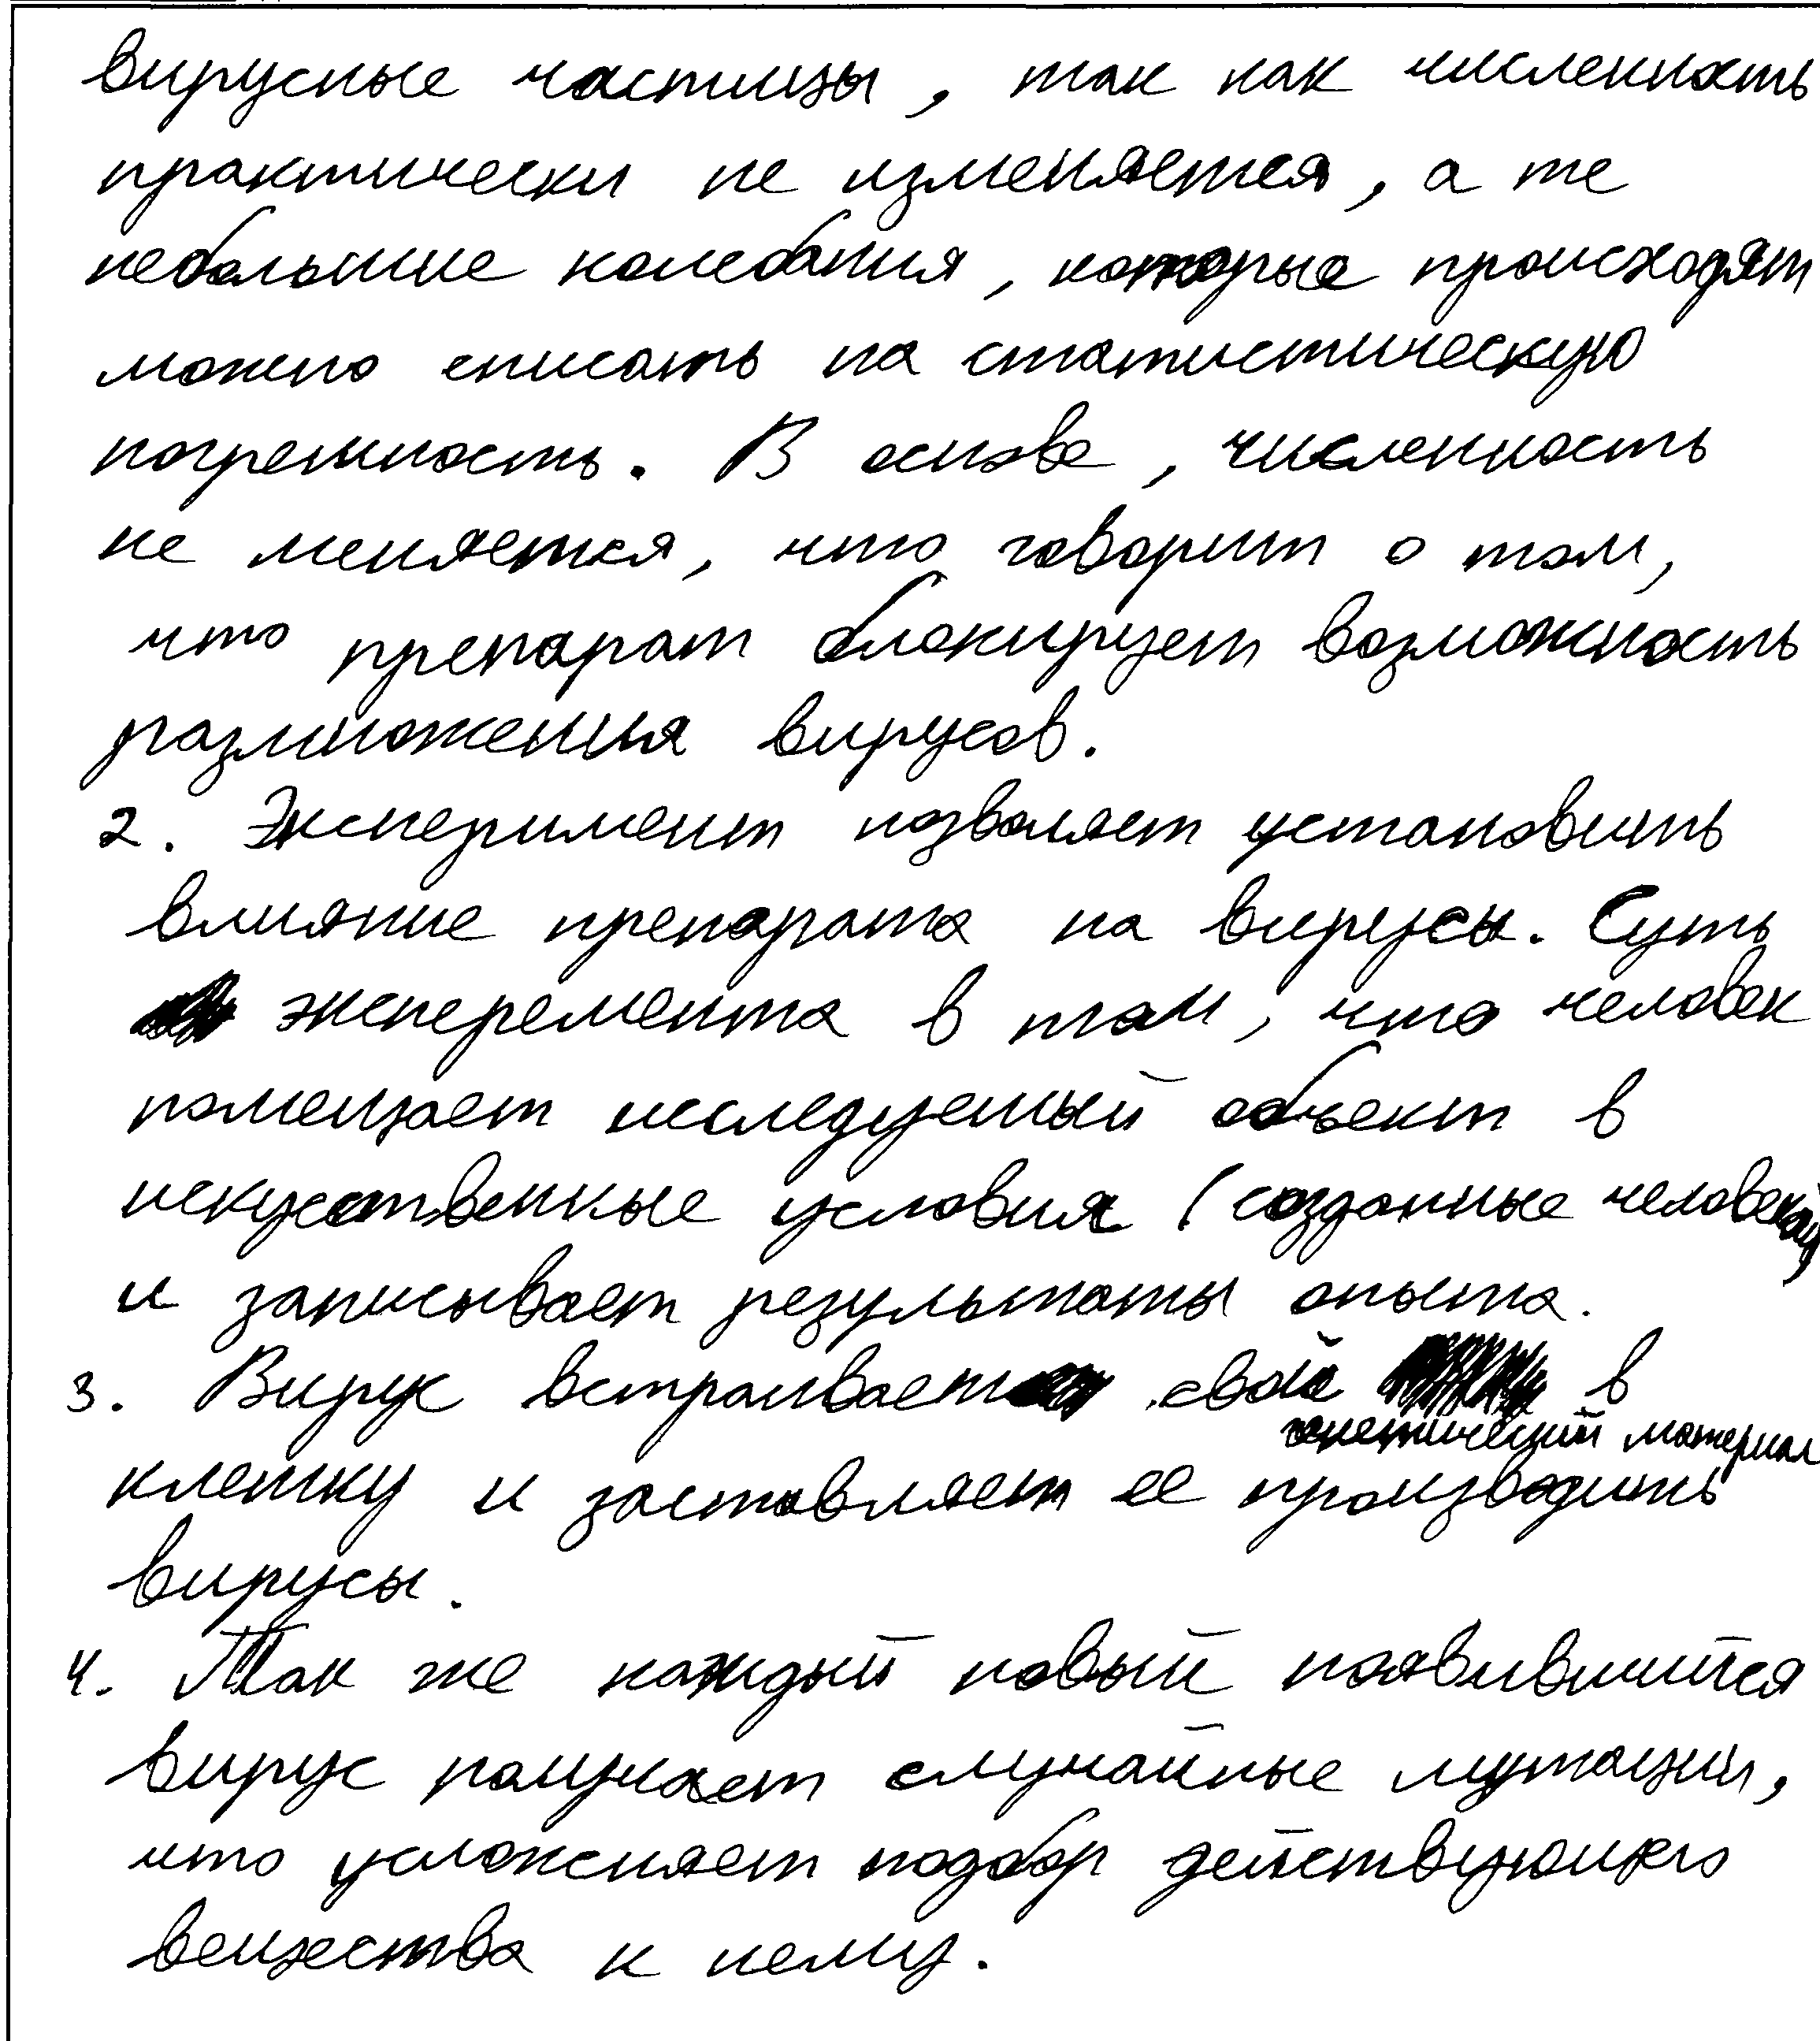 вирусные частицы, так как численность
практически не изменяется, а те
небольшие колебания, которые происходят
можно списать на статистическую
погрешность. В основе, численность
не меняется, что говорит о том,
что препарат блокирует возможность
размножения вирусов.
2. Эксперимент позволяет установить
влияние препарата на вирусы. Суть
эксперемента в том, что человек
помещает исследуемый объект в
искусственные условия (созданные человеком
и записывает результаты опыта.
3. Вирус встраивает свой в
генетический материал
клетку и заставляет ее производить
вирусы.
4. Так же каждый новый появившийся
вирус получает случайные мутации,
что усложняет подбор действующего
вещества к нему.